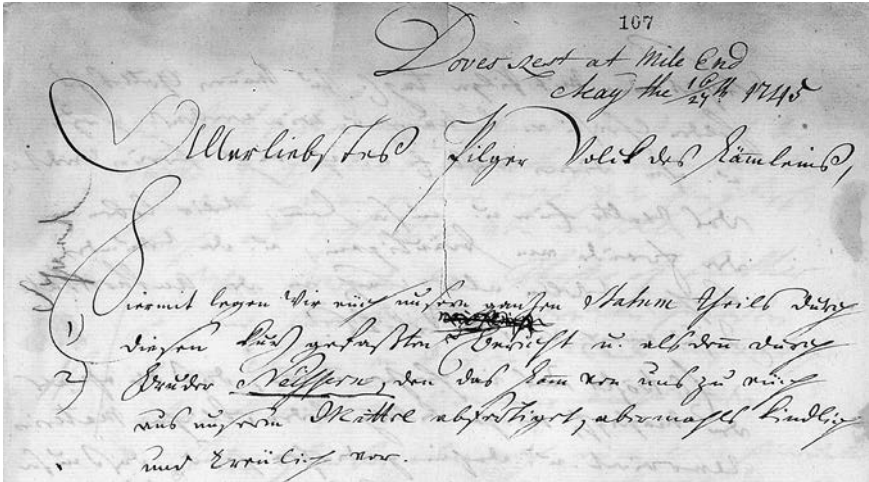 107
Doves Rest at Mile End
May the 16/27th 1745
Allerliebstes Pilger Volck des Lämmleins,
Hiermit legen Wir euch unsern ganzen Statum theils durch
1) diesen kurz gefaßten Bericht u. als denn durch
2) Bruder Neissern, den das Lamm von uns zu euch
aus unserm Mittel abfertiget, abermahls kindlich
und treulich vor.